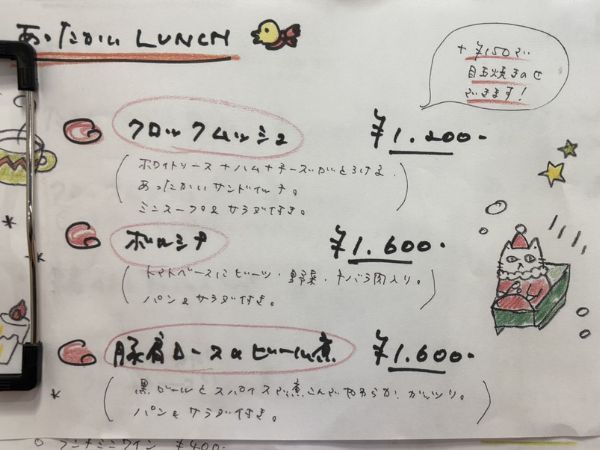 あったかい LUNCH
+¥150で
目玉焼きのせ
できます!
クロックムッシュ ¥1.200-
(ホワイトソース+ハム+チーズがとろける、
あったかいサンドイッチ。
ミニスープ&サラダ付き。)
ボルシチ ¥1.600-
(トマトベースにビーツ・野菜・牛バラ肉入り。
パン&サラダ付き。)
豚肩ロースのビール煮 ¥1.600-
(黒ビールとスパイスで煮こんでやわらか、がっつり。
パン&サラダ付き。)
ランチミニワイン ¥400-